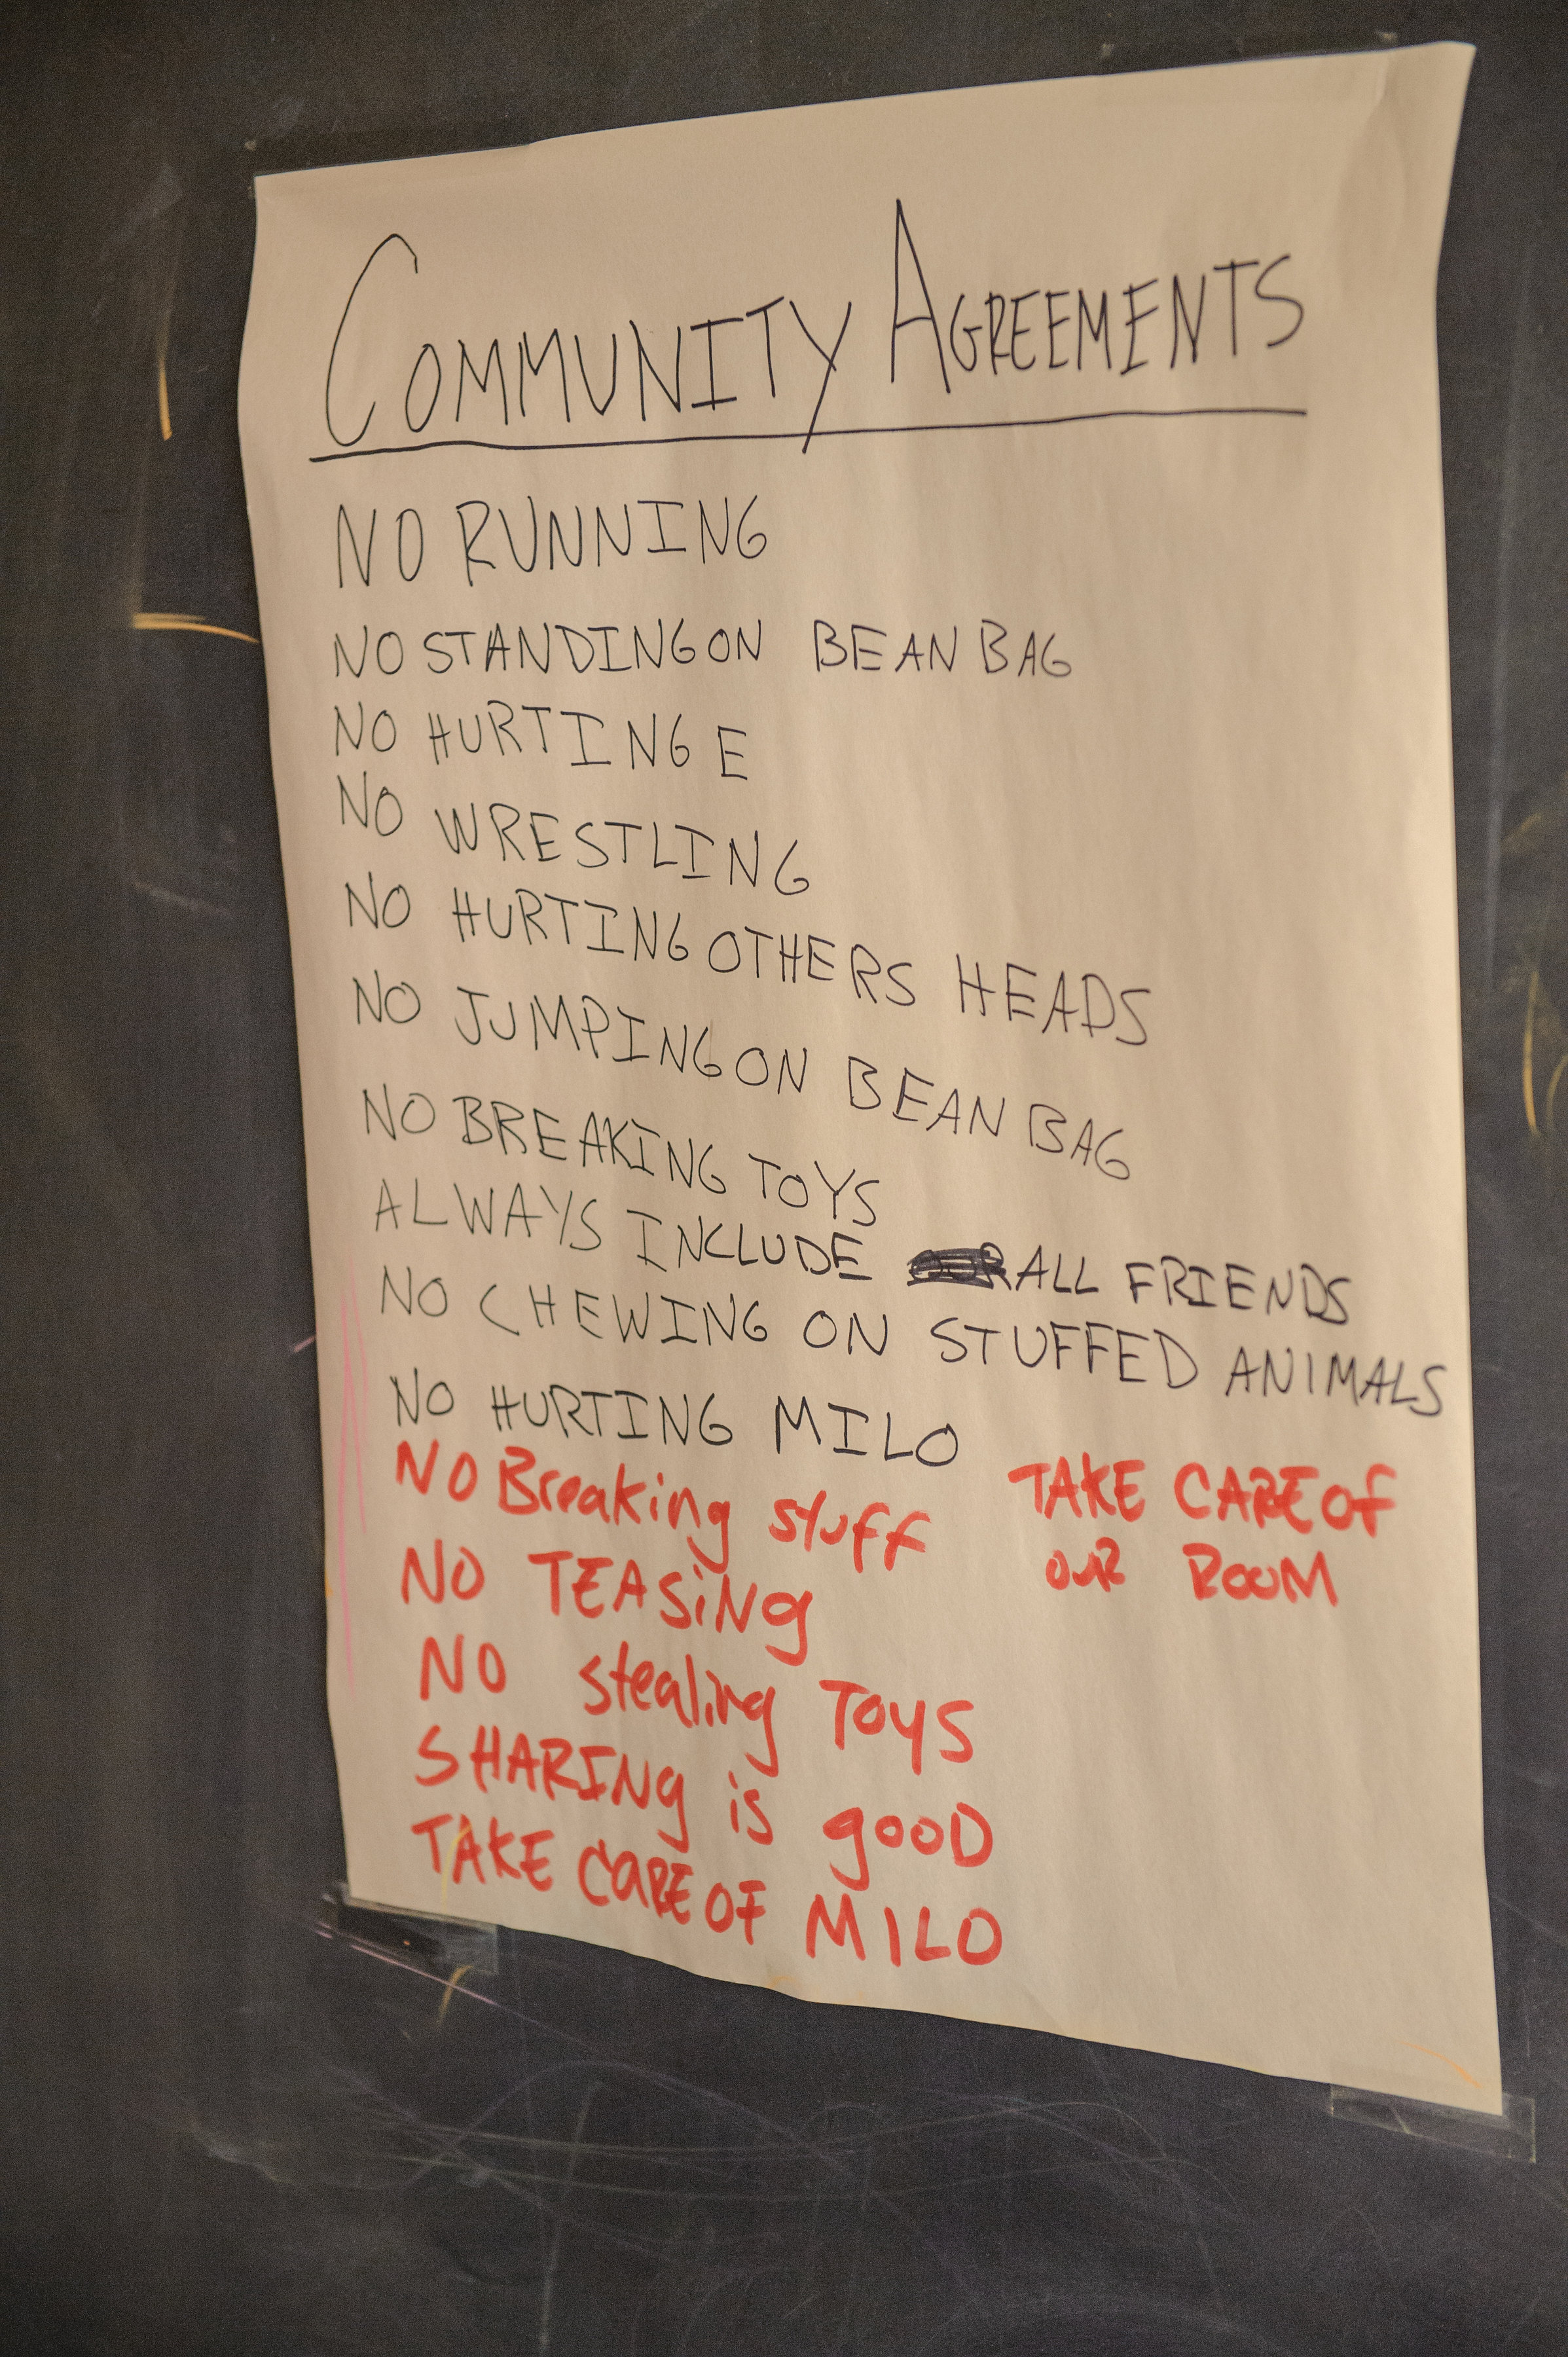 COMMUNITY AGREEMENTS
NO RUNNING
NO STANDING ON BEAN BAG
NO HURTING E
NO WRESTLING
NO HURTING OTHERS HEADS
NO JUMPING ON BEAN BAG
NO BREAKING TOYS
ALWAYS INCLUDE ALL FRIENDS
NO CHEWING ON STUFFED ANIMALS
NO HURTING MILO
NO Breaking stuff
TAKE CARE OF
OUR ROOM
NO TEASiNg
NO stealing Toys
SHARINg is gooD
TAKE CARE OF MILO